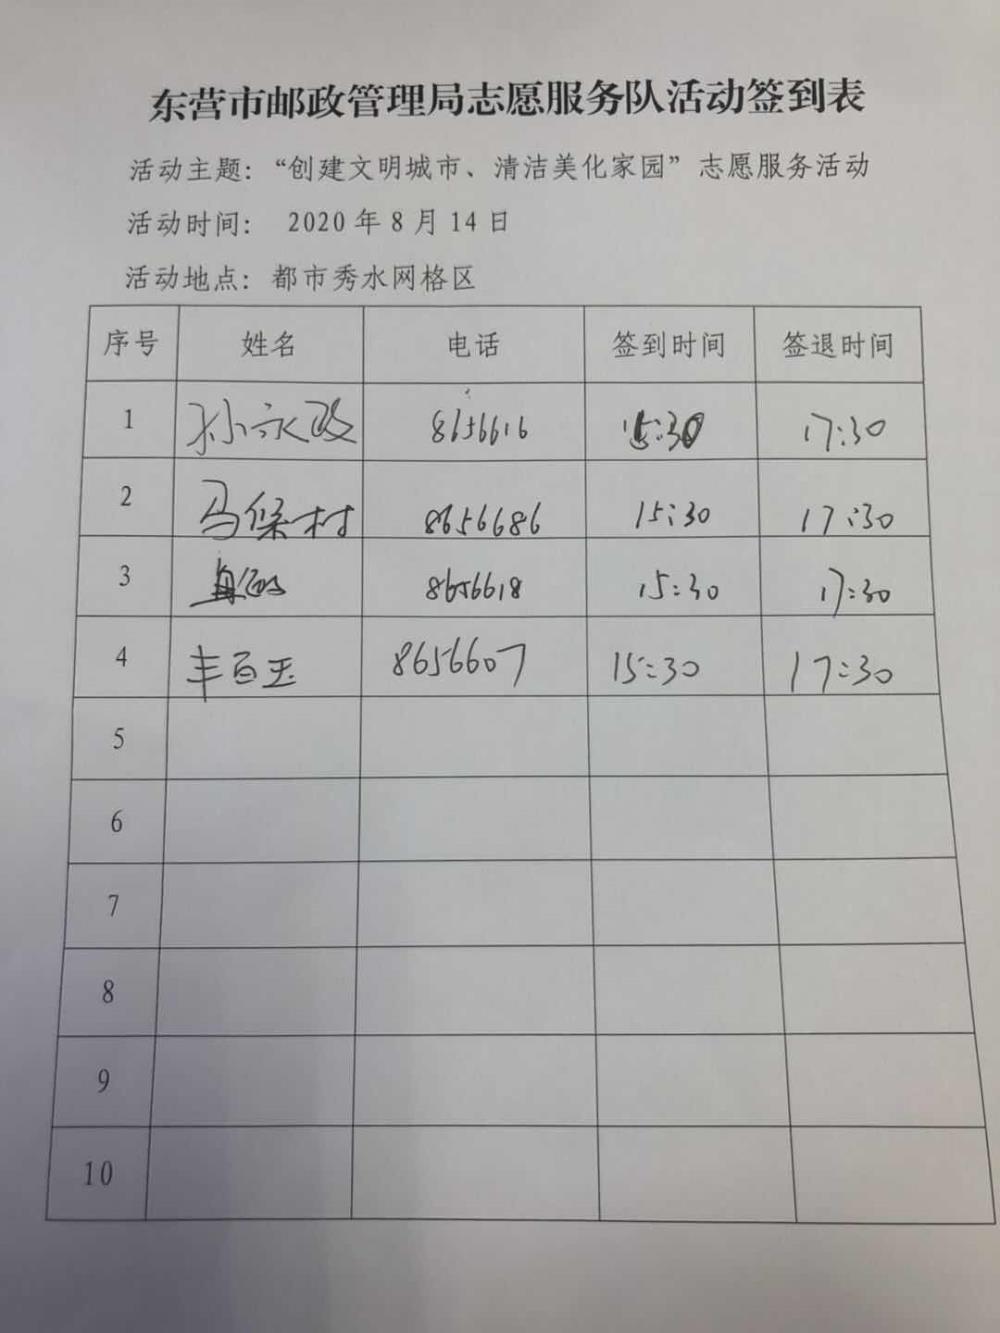 东营市邮政管理局志愿服务队活动签到表
活动主题：“创建文明城市、清洁美化家园”志愿服务活动
活动时间： 2020年8月14日
活动地点：都市秀水网格区
序号 姓名 电话 签到时间 签退时间
1 孙永政 8656616 15:30 17:30
2 马保村 8656686 15:30 17:30
3 8656618 15:30 17:30
4 丰百玉 8656607 15:30 17:30
5
6
7
8
9
10